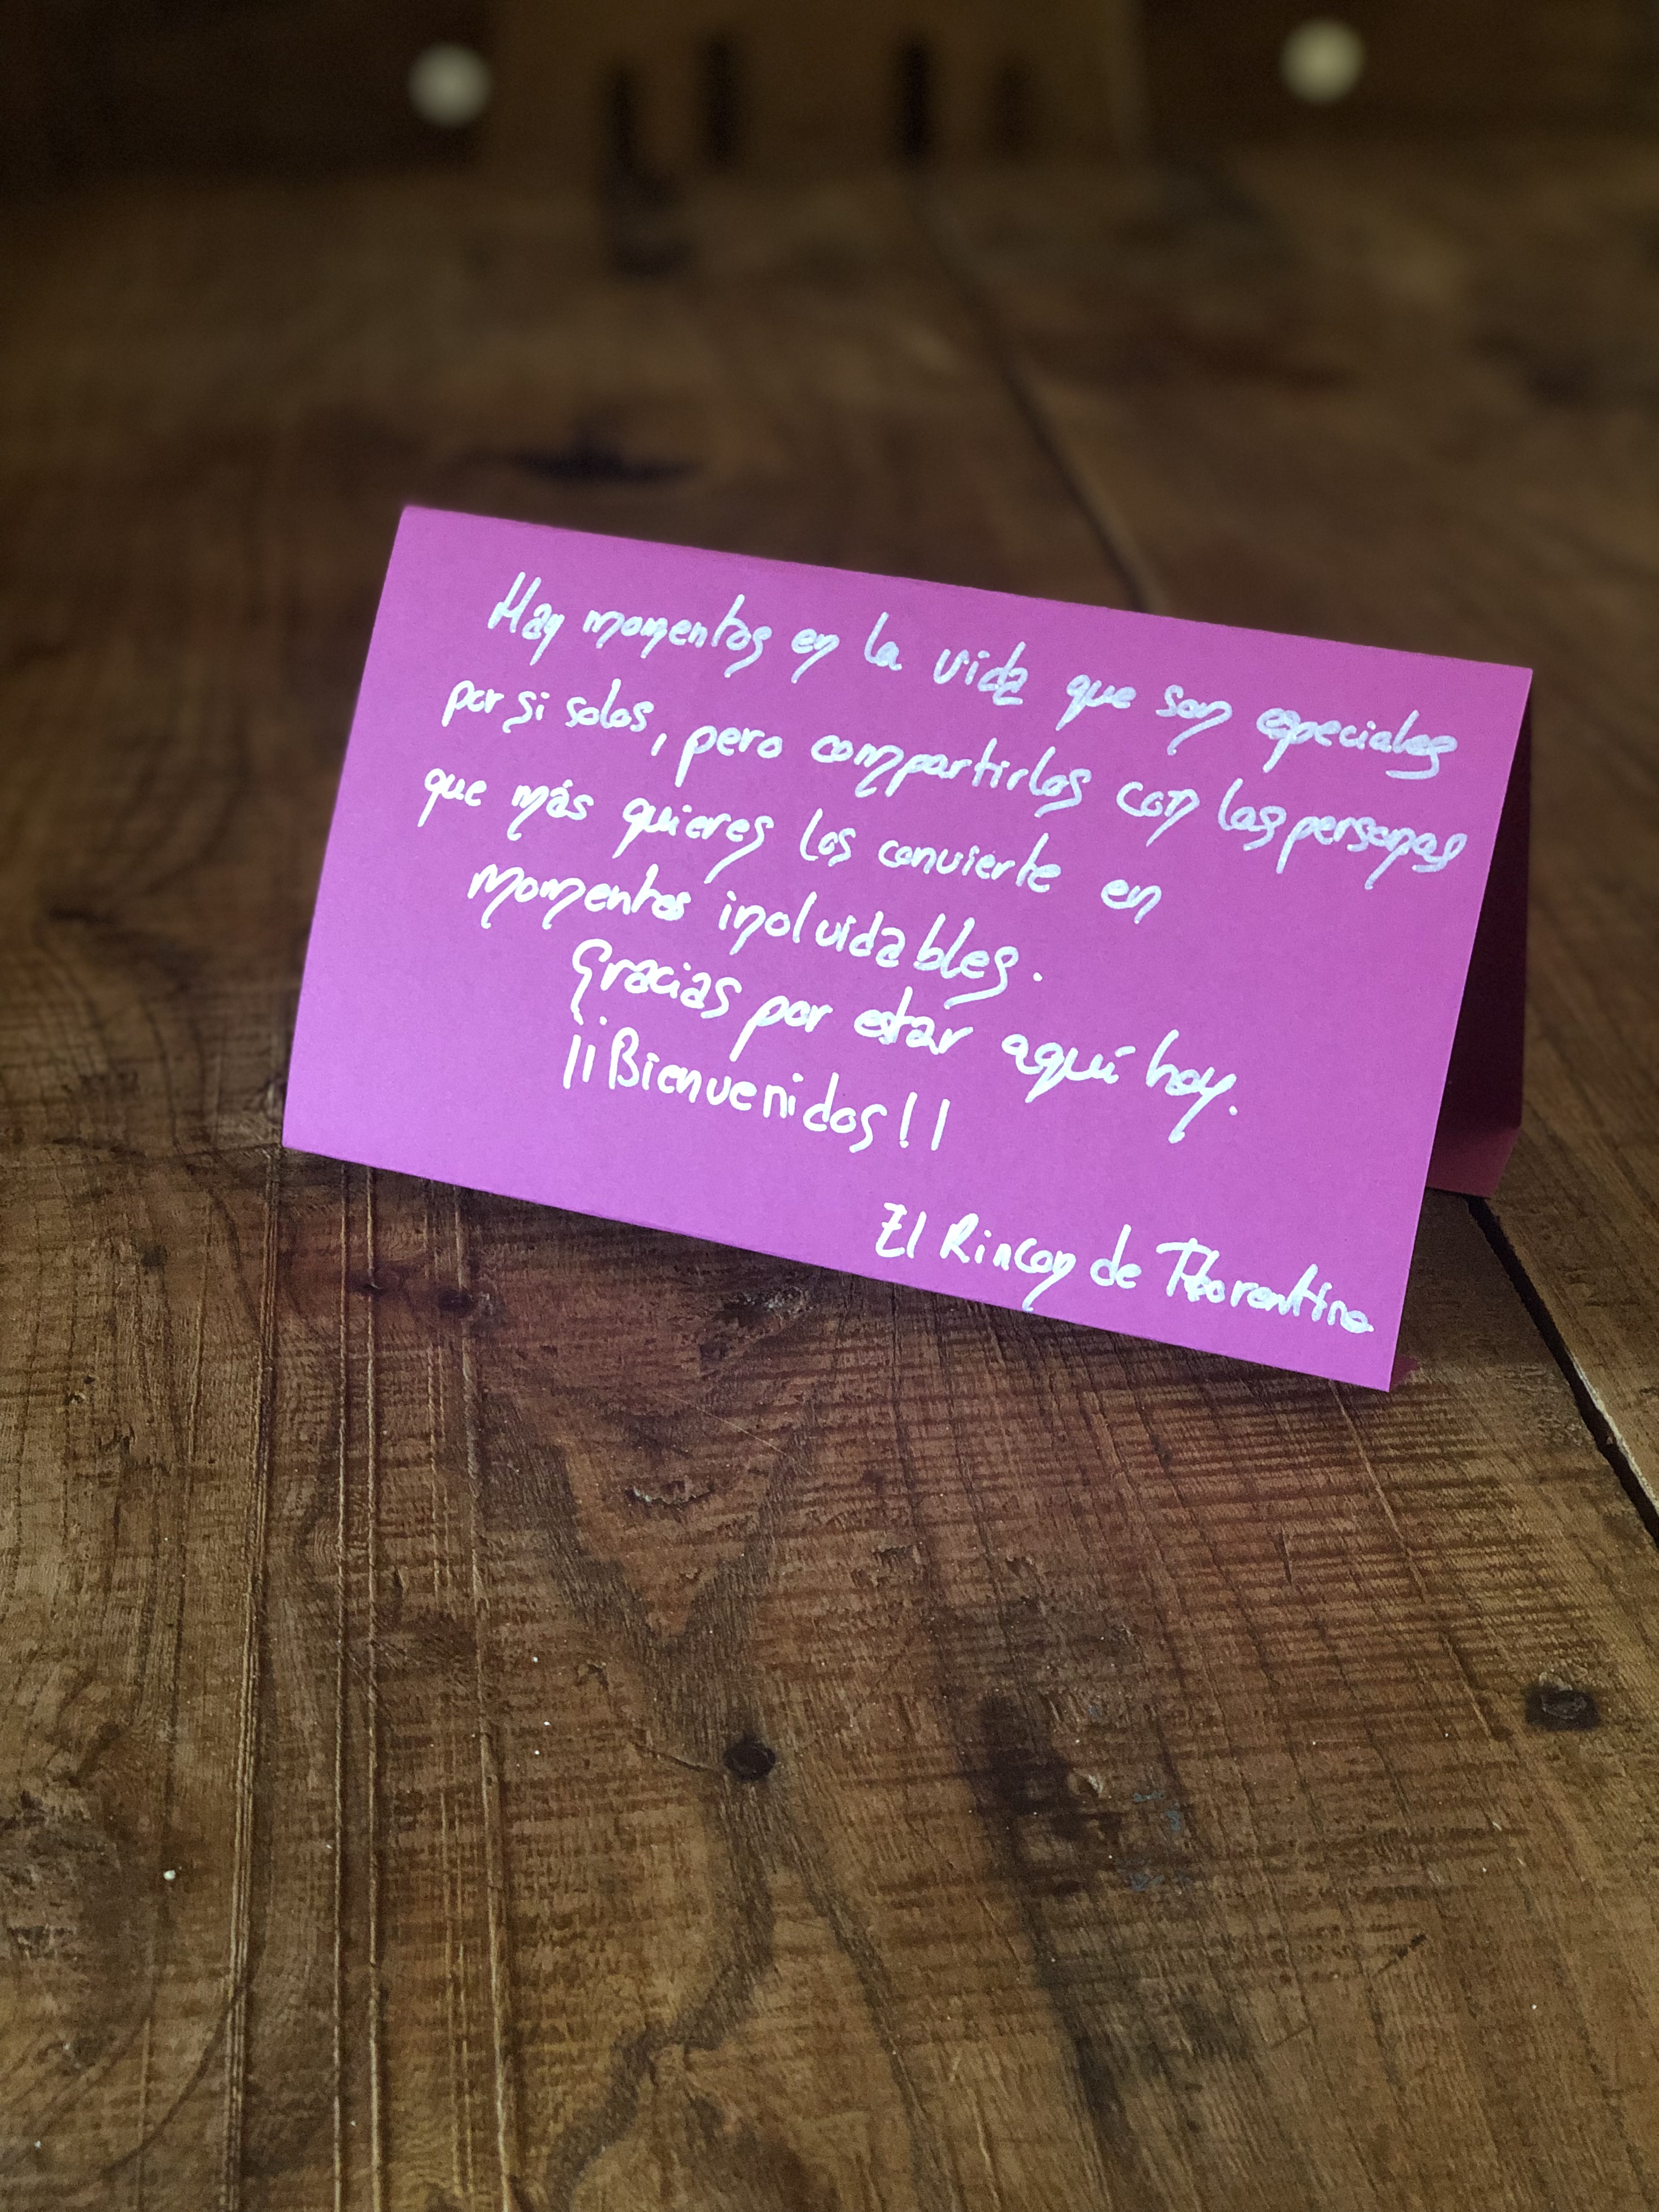 Hay momentos en la vida que son especiales
por si solos, pero compartirlos con las personas
que más quieres los convierte en
momentos inolvidables.
Gracias por estar aquí hoy.
¡¡Bienvenidos!!
El Rincon de